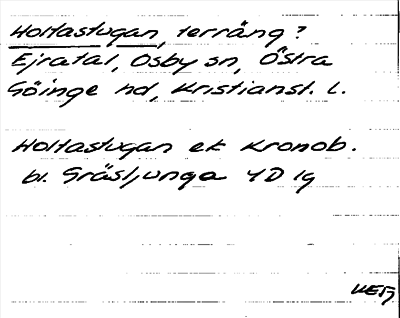 Holtastugan, terräng?
Ejratal, Osby sn, Östra
Göinge hd, Kristianst. l.
Holtastugan ek Kronob.
bl. Gräsljunga 4D 1g